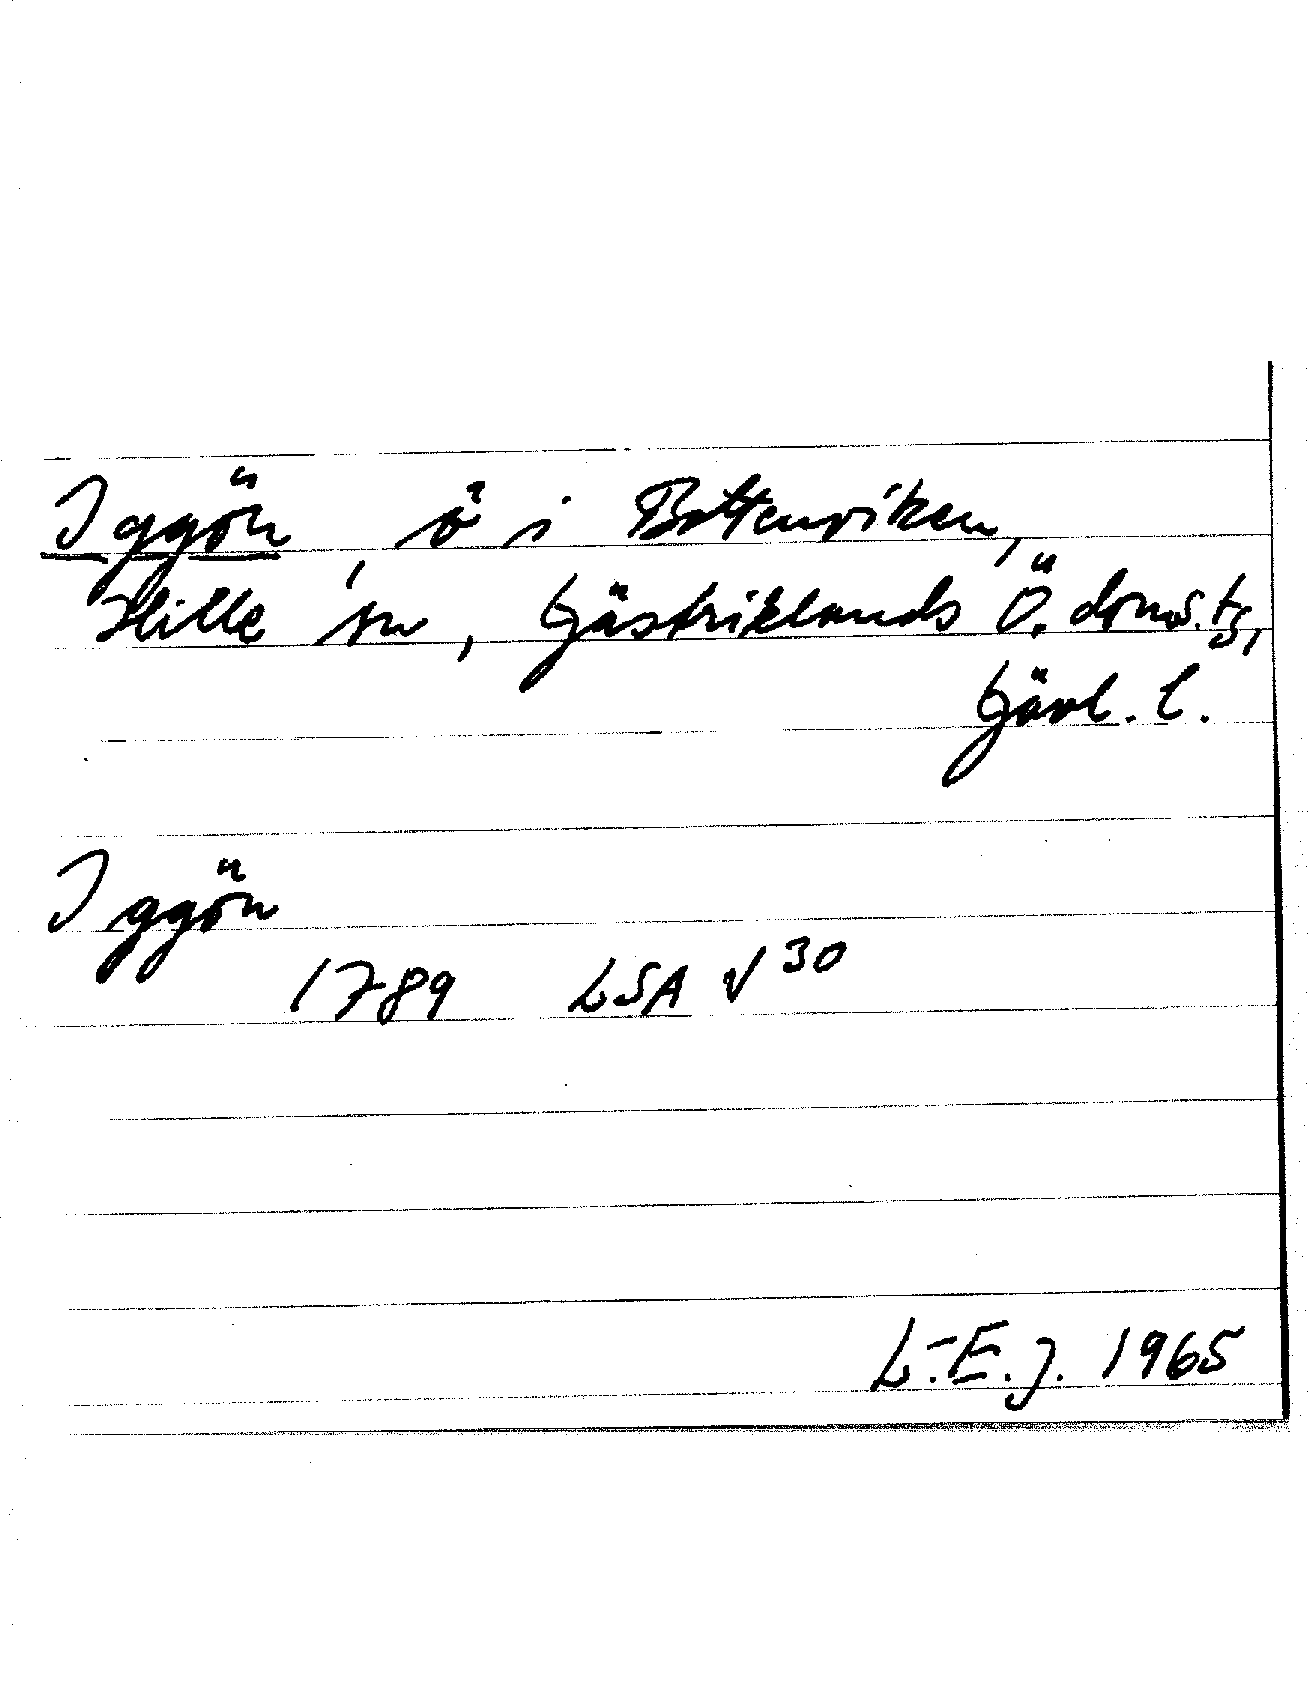 Iggön, ö i Bottenviken,
Hille sn, Gästriklands Ö. doms.tg,
Gävl. l.
Iggön
1789 LSA V 30
L.-E. J. 1965